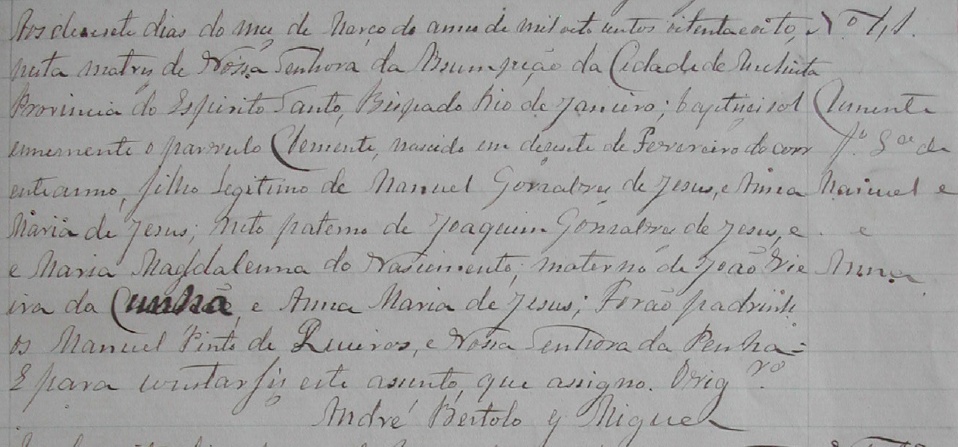 Aos desesete dias do mez de Março do anno de mil oito centos oitenta e oito,
nesta matris de Nossa Senhora da Assumpção da Cidade de
Provincia do Espirito Santo, Bispado Rio de Janeiro; baptisei sol
emnemente o parvulo Clemente, nascido em desesete de Fevereiro do corr
ente anno, filho legitimo de Manuel Gonzalves de Jesus, e Anna
Maria de Jesus; neto paterno de Joaquim Gonzalves de Jesus, e
e Maria Magdalenna do Nascimento; materno de João Vie
ira da Cunha, e Anna Maria de Jesus; Forão padrinh
os Manuel Pinto de Queiros, e Nossa Senhora da Penha=
E para constar fis este asunto, que assigno. Orig
André Bertolo y Miguel
Clemente
fº Gºe de
Manuel e
e
Anna